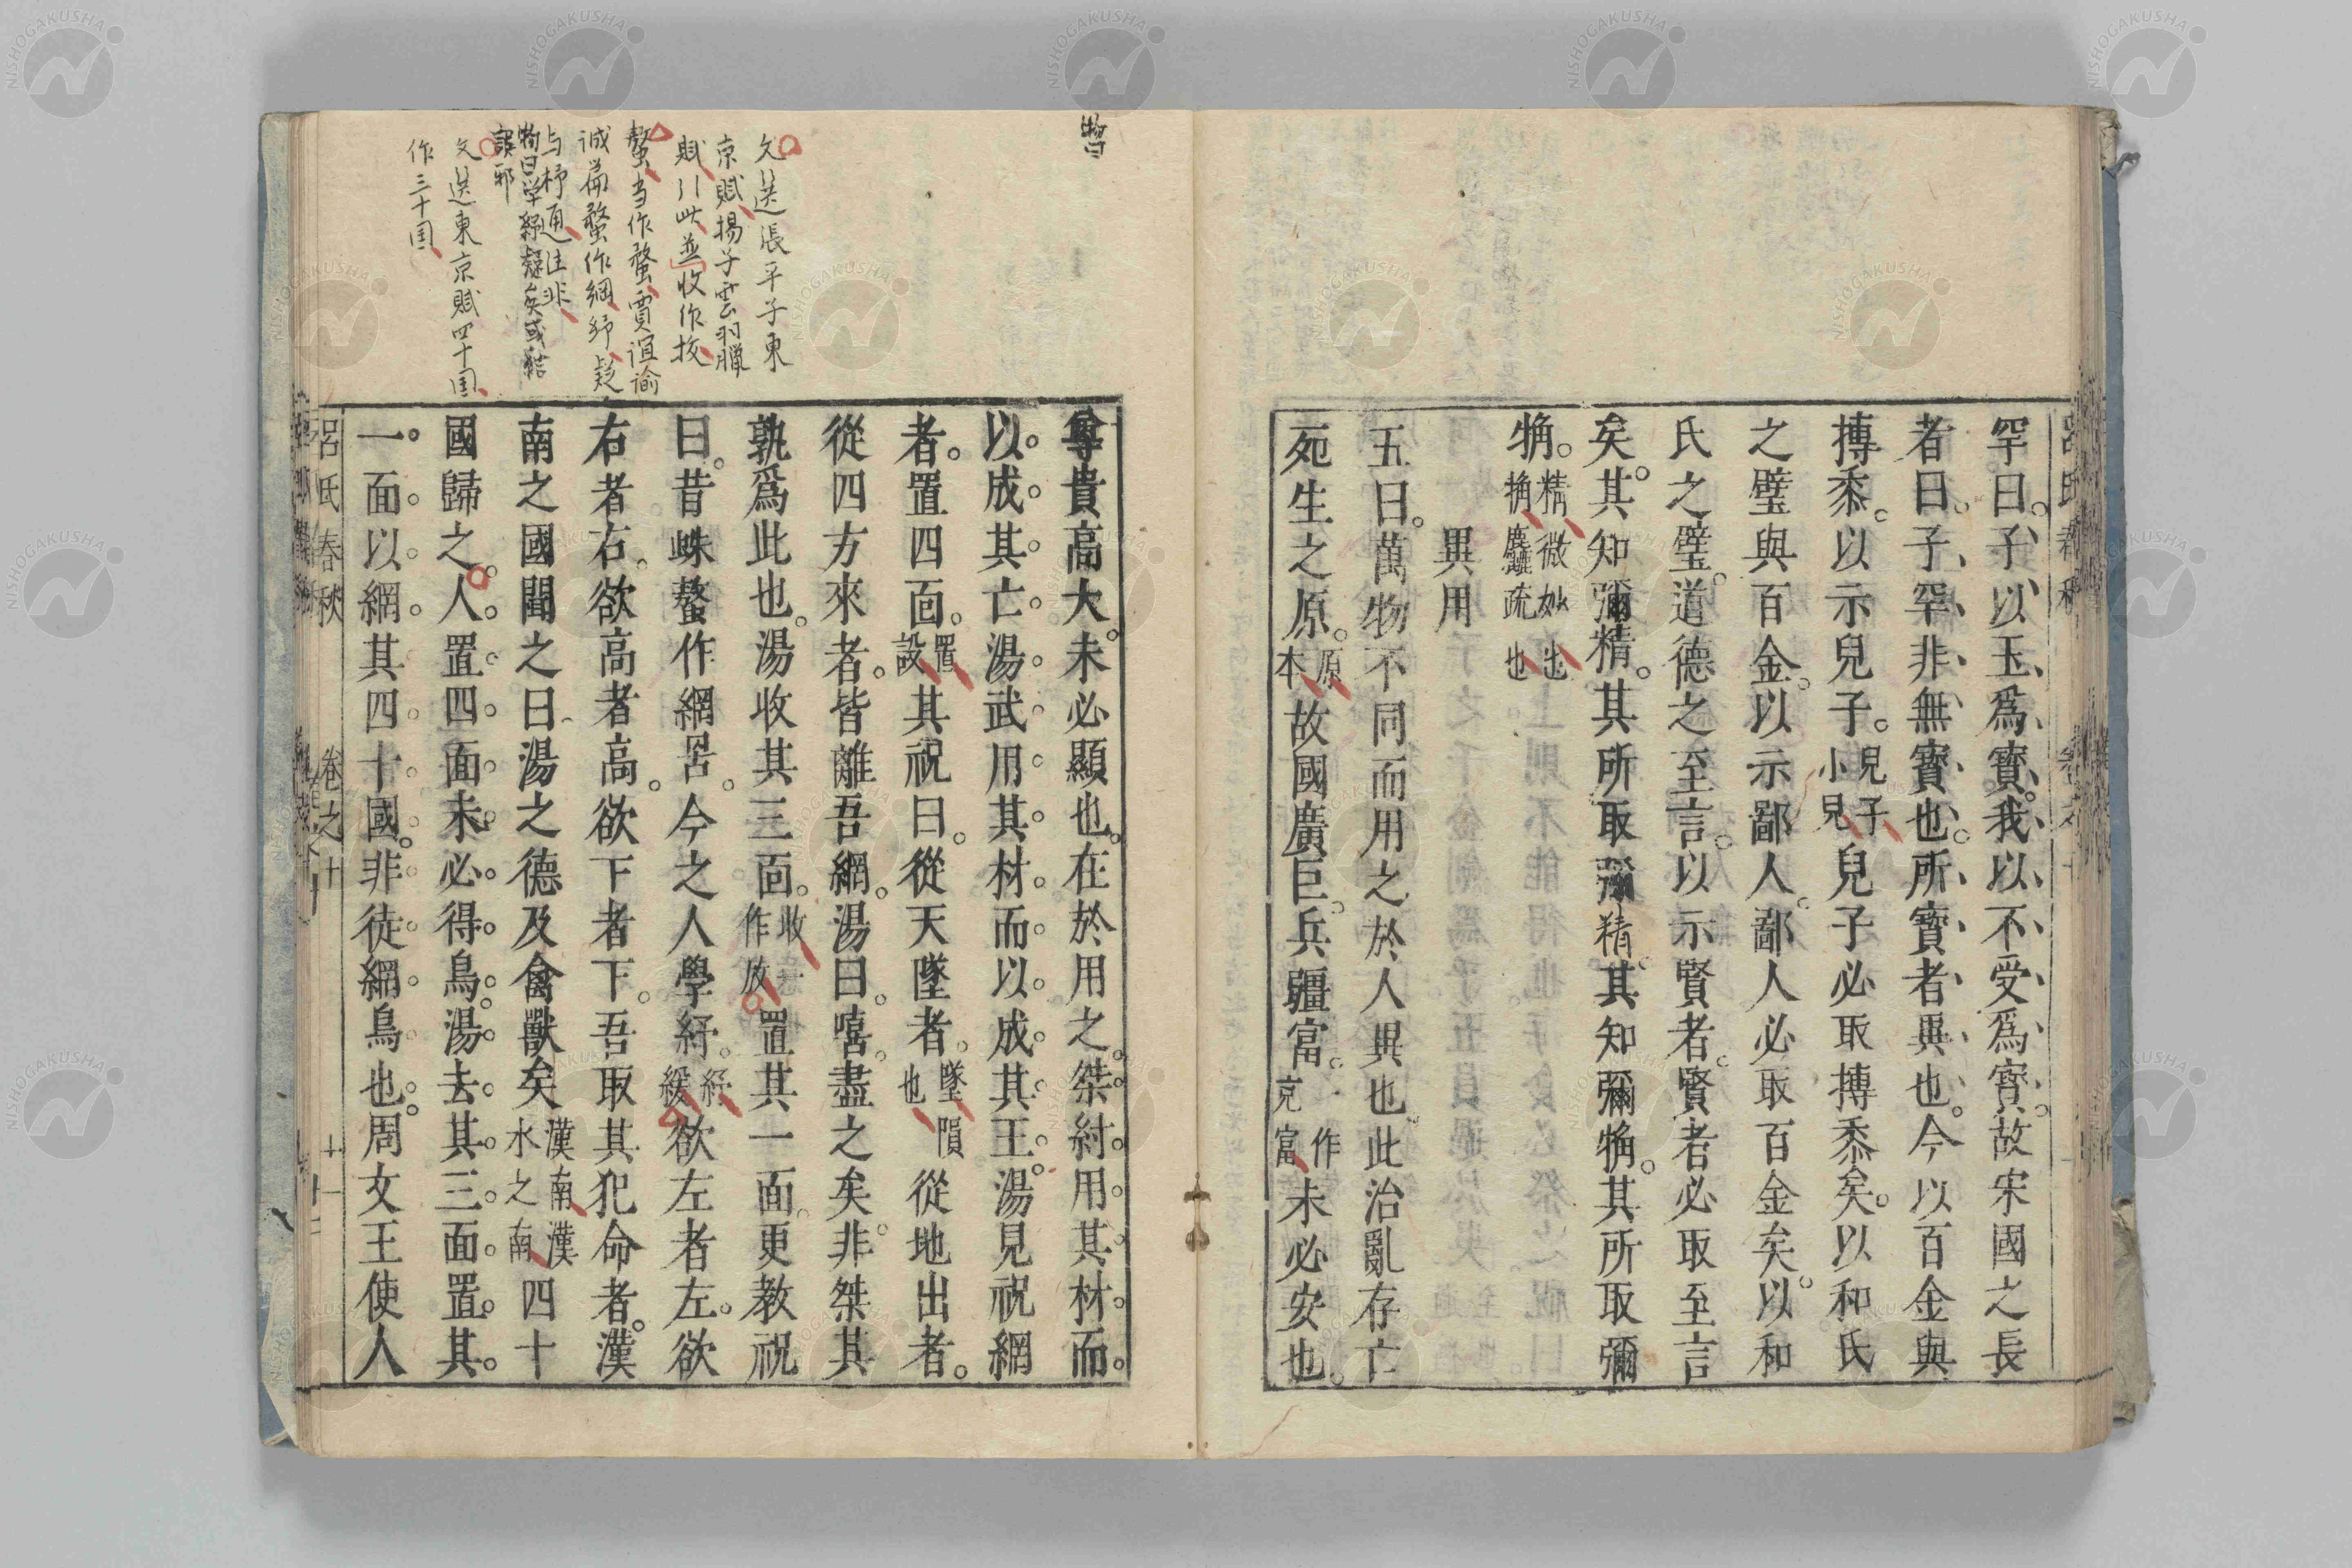 罕曰。子以玉爲寶。我以不受爲寶。故宋國之長
者曰。子罕非無寶也。所寶者異也。今以百金與
搏黍。以示兒子。兒子小兒兒子必取搏黍矣。以和氏
之璧與百金。以示鄙人。鄙人必取百金矣。以和
氏之璧。道德之至言。以示賢者。賢者必取至言
矣。其知彌精。其所取彌精。其知彌觕。其所取彌
觕。精微妙也觕麤疏也
異用
五曰。萬物不同。而用之於人異也。此治亂存亡
死生之原。原本故國廣巨。兵彊富。一作克富未必安也。
尊貴高大。未必顯也。在於用之。桀紂用其材而
以成其亡。湯武用其材而以成其王。湯見祝網
者。置四面。置設其祝曰。從天墜者。墜隕也從地出者。
從四方來者。皆離吾網。湯曰。嘻。盡之矣。非桀其
孰爲此也。湯收其三面。收作放置其一面。更教祝
曰。昔蛛螯作網罟。今之人學紓。紓緩欲左者左。欲
右者右。欲高者高。欲下者下。吾取其犯命者。漢
南之國聞之曰。湯之德及禽獸矣漢南漢水之南四十
國歸之。人置四面。未必得鳥。湯去其三面。置其
一面。以網其四十國。非徒網鳥也。周文王使人
呂氏春秋 卷之十 十一
文選張平子東
京賦揚子雲羽臘
賦引此並收作拔
螯当作蝥賈誼諭
誠篇蝥作網紓疑
与杼通注非
物曰学紓疑矣或結
誤邪
文選東京賦四十国
作三十国